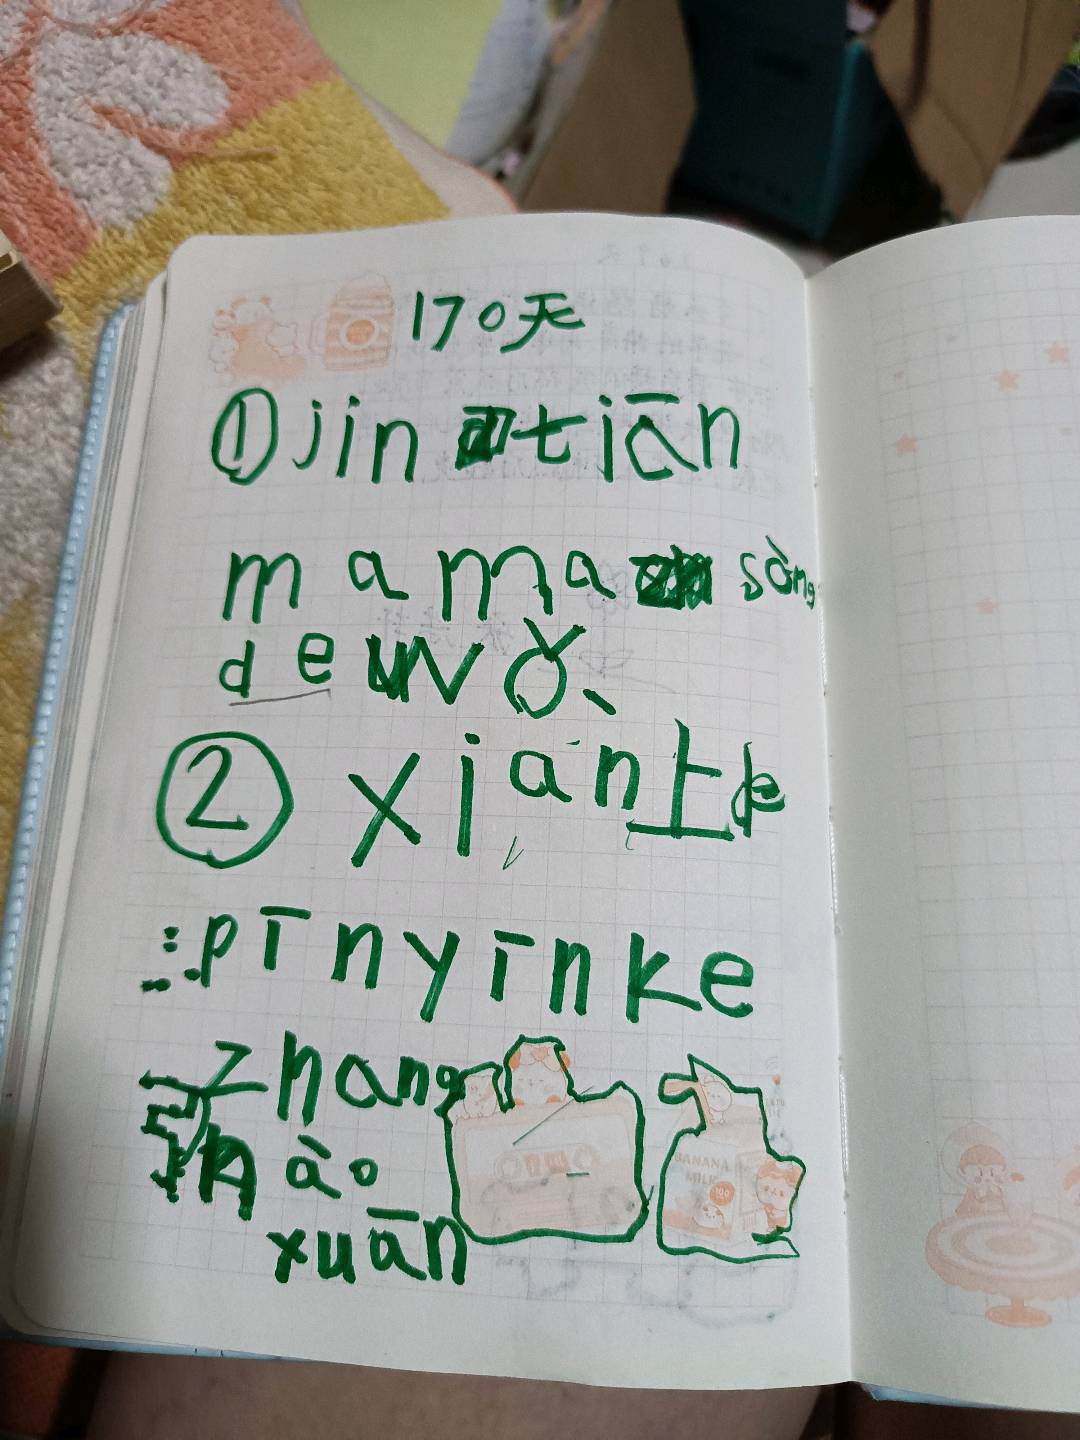 170天
①jin tiān
mama sòng
de wǒ、
② xián上de
:pīnyīnke
zhang
hào
xuān
BANANA
MILK